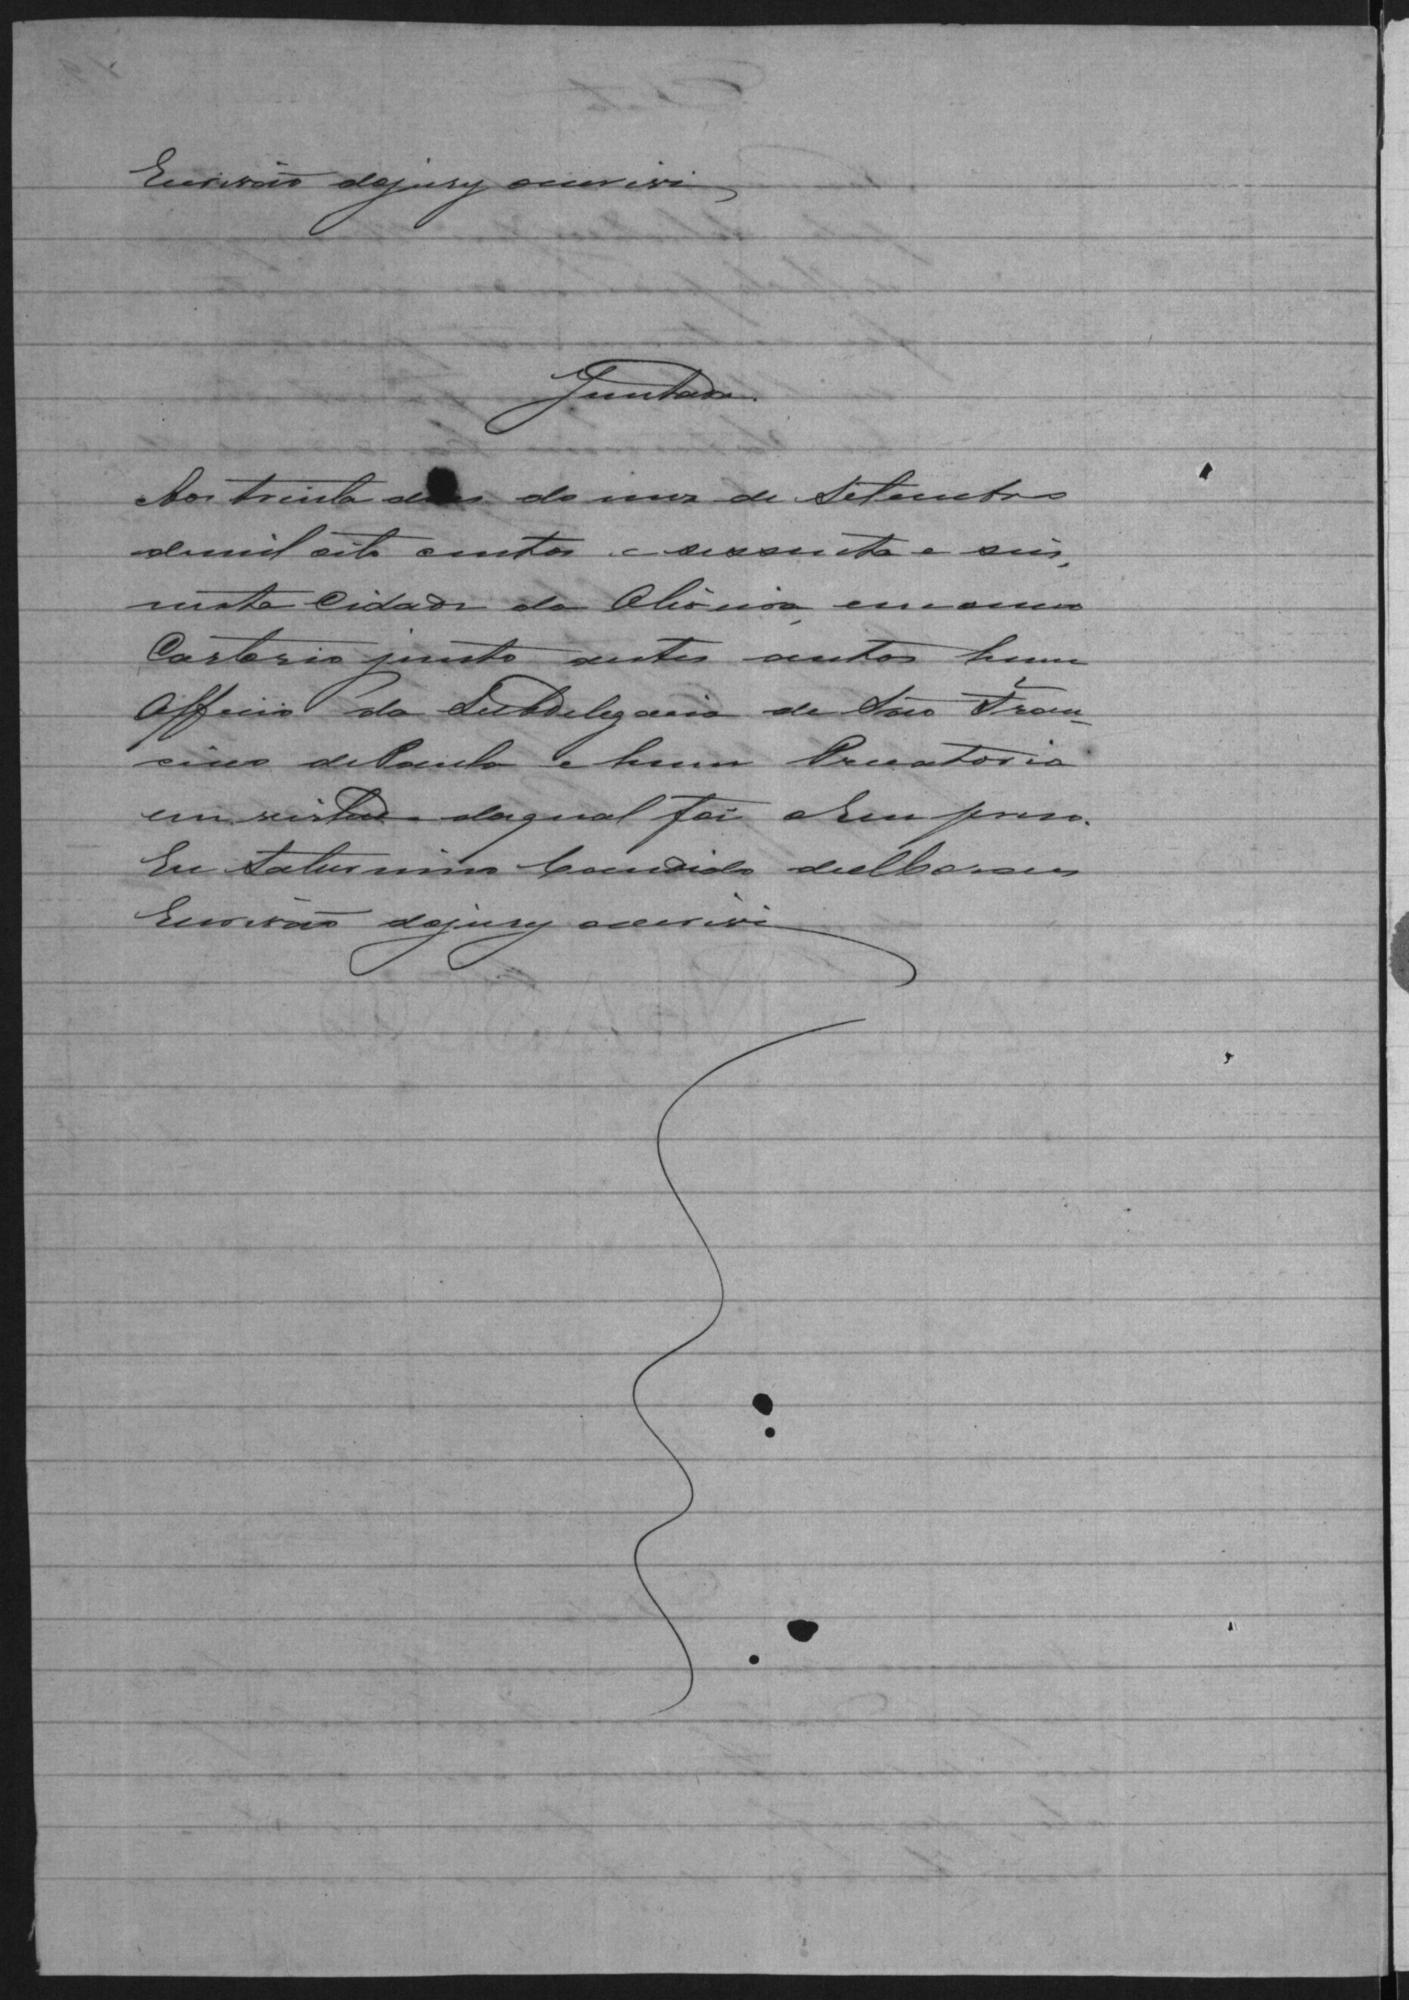 Escrivão dojury oescrivi
Juntada.
Aos trinta dias do mez de Setembro
demil oito centos e sessenta e seis,
nesta Cidade da Oliveira, em o meu
Cartorio junto aestes autos hum
Officio da Subdelegacia de São Fran-
cisco dePaula e huma Precatoria
em virtude daqual foi o Reu preso.
Eu Saturnino Candido
Escrivão dojury oescrivi